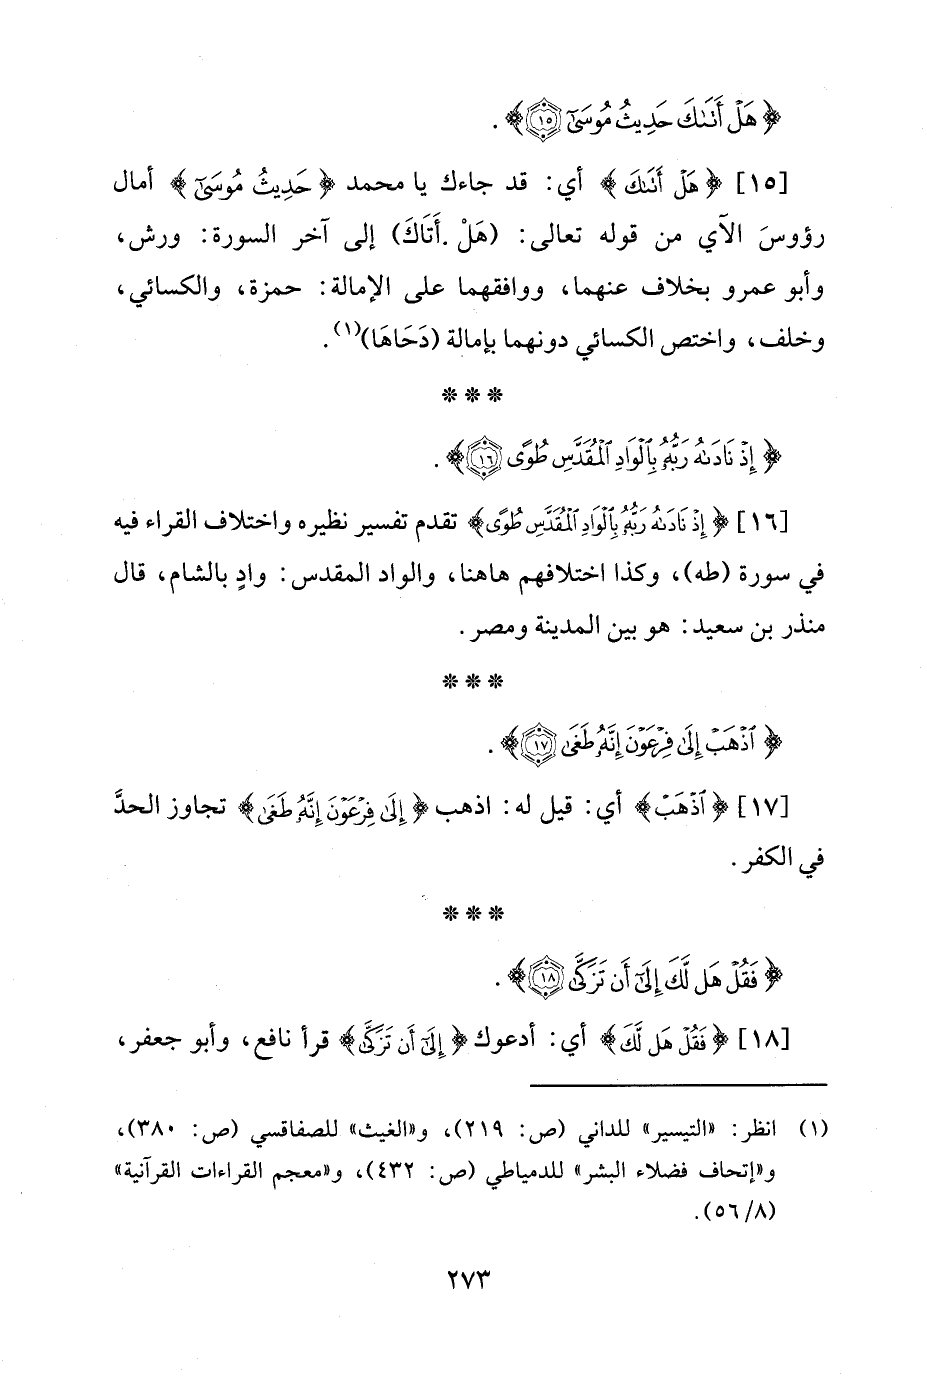 ﴿ هَلْ أَتَىٰكَ حَدِيثُ مُوسَىٰٓ ١٥ ﴾ .
[١٥] ﴿ هَلْ أَتَىٰكَ ﴾ أي: قد جاءك يا محمد ﴿ حَدِيثُ مُوسَىٰٓ ﴾ أمال
رؤوسَ الآي من قوله تعالى: (هَلْ .أَتَاكَ) إلى آخر السورة: ورش،
وأبو عمرو بخلاف عنهما، ووافقهما على الإمالة: حمزة، والكسائي،
وخلف، واختص الكسائي دونهما بإمالة (دَحَاهَا)(١).
* * *
﴿ إِذْ نَادَىٰهُ رَبُّهُۥ بِٱلْوَادِ ٱلْمُقَدَّسِ طُوًى ١٦ ﴾ .
[١٦] ﴿ إِذْ نَادَىٰهُ رَبُّهُۥ بِٱلْوَادِ ٱلْمُقَدَّسِ طُوًى ﴾ تقدم تفسير نظيره واختلاف القراء فيه
في سورة (طه)، وكذا اختلافهم هاهنا، والواد المقدس: وادٍ بالشام، قال
منذر بن سعيد: هو بين المدينة ومصر.
* * *
﴿ ٱذْهَبْ إِلَىٰ فِرْعَوْنَ إِنَّهُۥ طَغَىٰ ١٧ ﴾ .
[١٧] ﴿ ٱذْهَبْ ﴾ أي: قيل له: اذهب ﴿ إِلَىٰ فِرْعَوْنَ إِنَّهُۥ طَغَىٰ ﴾ تجاوز الحدَّ
في الكفر.
* * *
﴿ فَقُلْ هَل لَّكَ إِلَىٰٓ أَن تَزَكَّىٰ ١٨ ﴾ .
[١٨] ﴿ فَقُلْ هَل لَّكَ ﴾ أي: أدعوك ﴿ إِلَىٰٓ أَن تَزَكَّىٰ ﴾ قرأ نافع، وأبو جعفر،
(١) انظر: «التيسير» للداني (ص: ٢١٩)، و«الغيث» للصفاقسي (ص: ٣٨٠)،
و«إتحاف فضلاء البشر» للدمياطي (ص: ٤٣٢)، و«معجم القراءات القرآنية»
(٨/ ٥٦).
٢٧٣